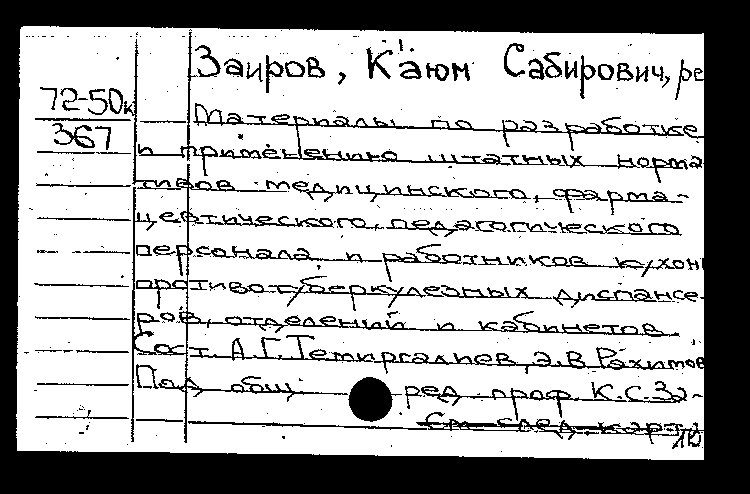 Заиров, Каюм Сабирович, ре
72-50к
367
Материалы по разработке
и применению штатных норма
тивов медицинского, фарма-
цевтического, педагогического
персонала и работников кухон
противотуберкулезных диспансе-
ров, отделений и кабинетов.
Сост. А.Г. Темиргалиев, Э.В Рахимов
Под общ. ред. проф. К.С.За-
См след. карт.